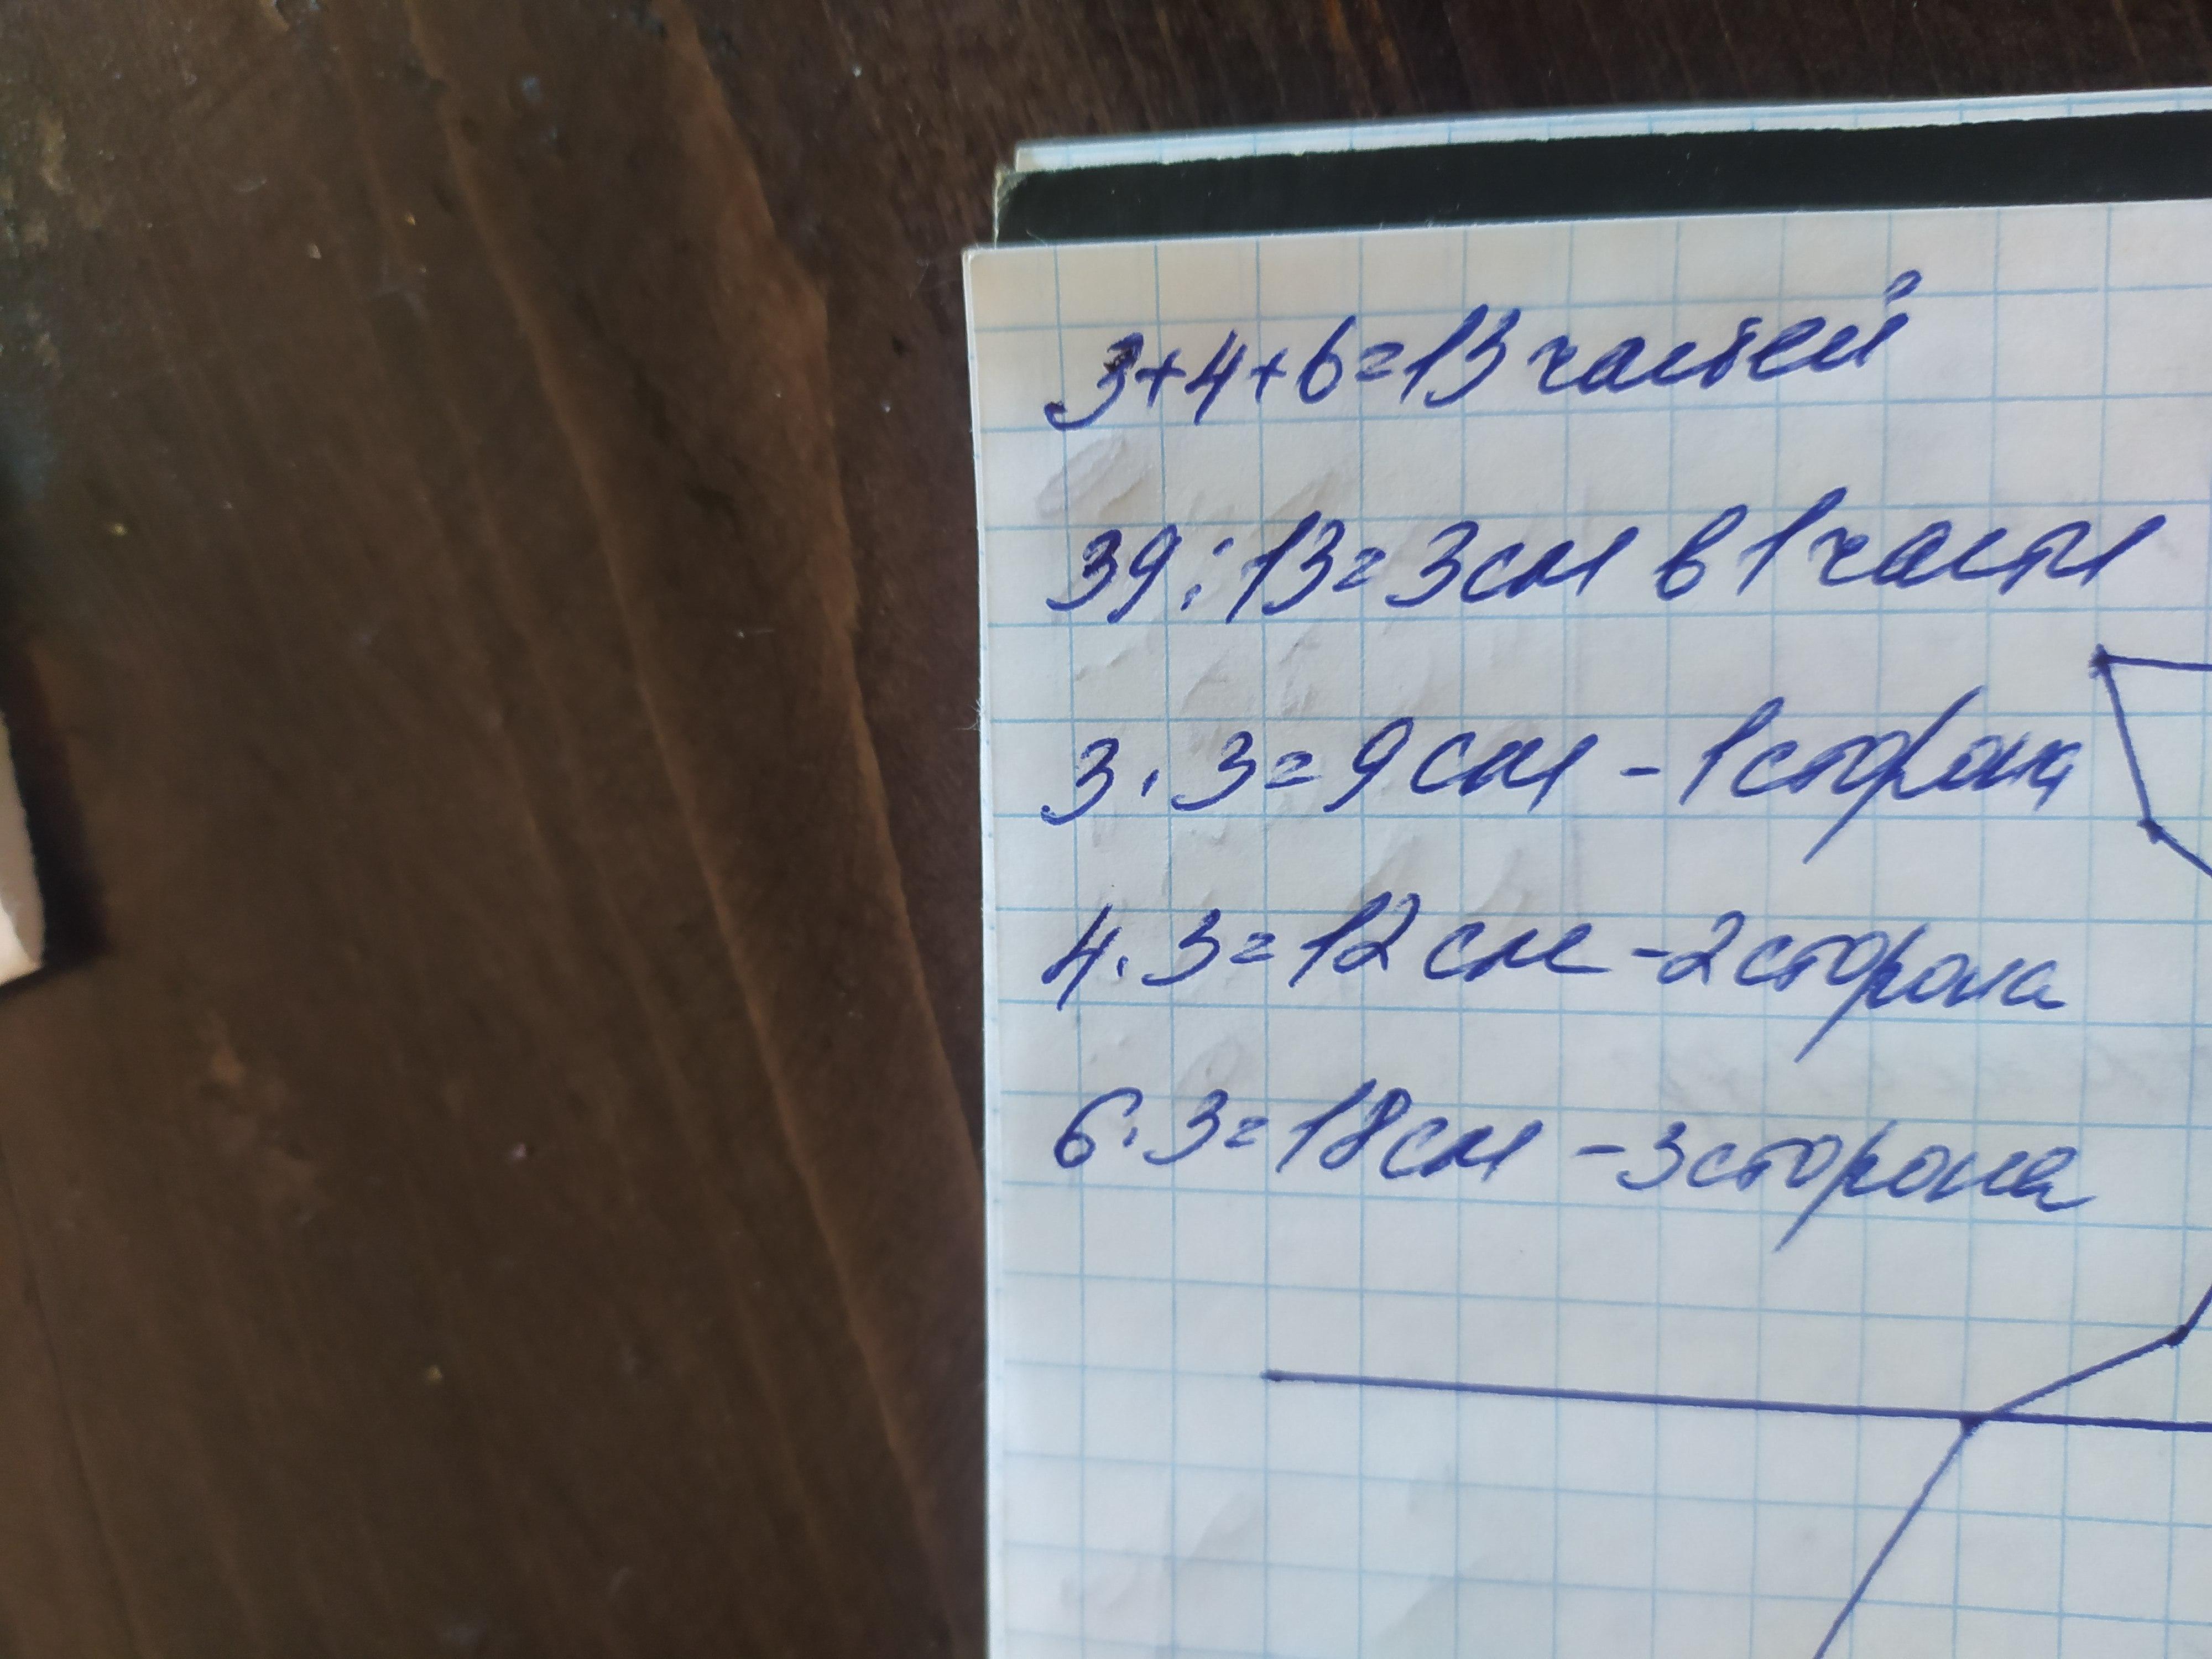 3+4+6=13 частей
39:13=3см в 1 части
3·3=9см - 1 сторона
4·3=12см - 2 сторона
6·3=18см - 3 сторона